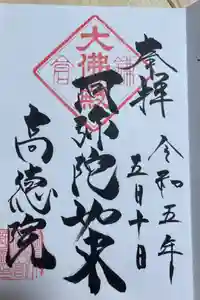 奉拝
令和五年
五月十日
阿弥陀如来
大佛殿
高徳院